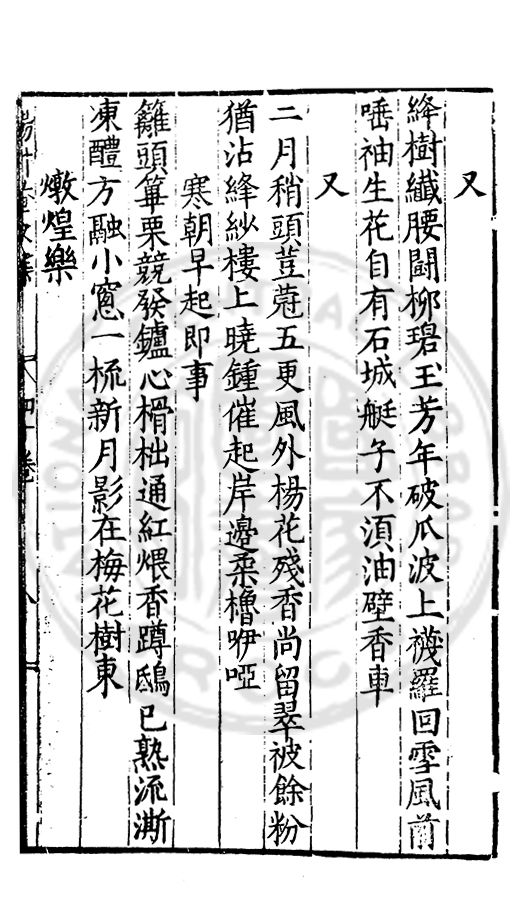 又
絳樹纖腰鬪柳碧玉芳年破瓜波上襪羅回雪風前
唾袖生花自有石城艇子不湏油壁香車
又
二月稍頭荳蔲五更風外楊花殘香尚留翠被餘粉
猶沾絳紗樓上曉鍾催起岸邊柔櫓咿啞
寒朝早起即事
籬頭篳栗競發鑪心榾柮通紅煨香蹲鴟已熟流澌
凍醴方融小窻一梳新月影在梅花樹東
燉煌樂